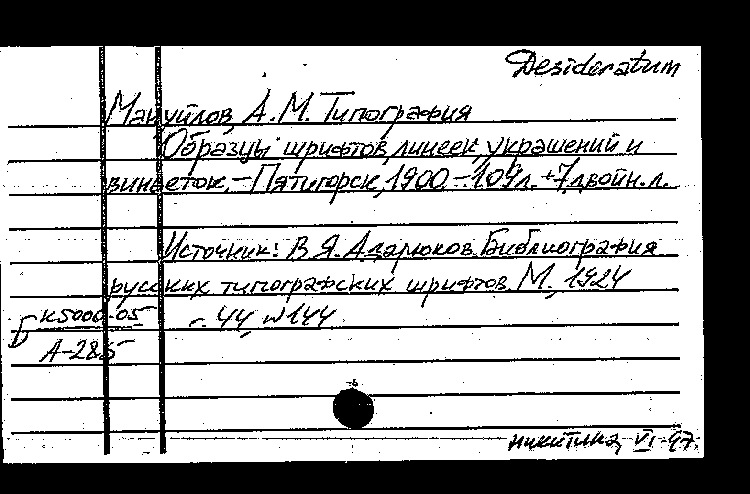 Desideratum
Мануйлов, А.М. Типография
Образцы шрифтов, линеек, украшений и
виньеток. – Пятигорск, 1900. – 109л. + 7 двойн. л.
Источник: В.Я. Адарюков. Библиография
русских типографских шрифтов. М., 1924
с. 44, №144
Б К5000-05
А-285
Никитина, VI-97.